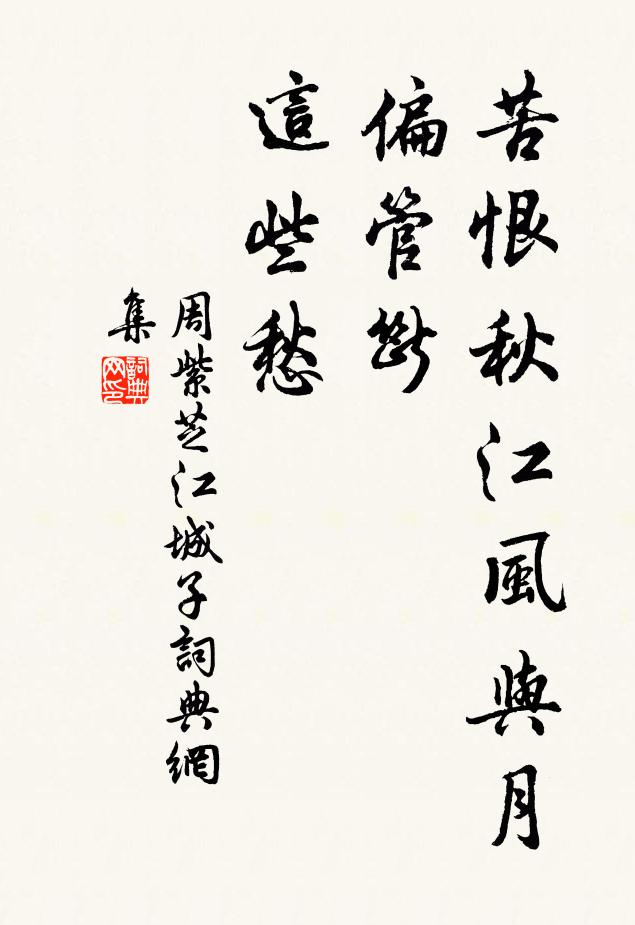 苦恨秋江風與月
偏管斷
這些愁
周紫芝江城子詞典網
集
詞典
网印